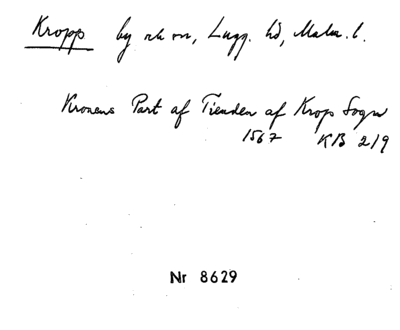 Kropp by nk sn, Lugg. hd, Malm. l.
Kronens Part af Tienden af Krop Sogn
1567 KB 219
Nr 8629